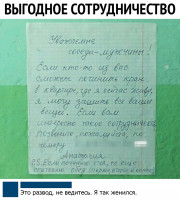 ВЫГОДНОЕ СОТРУДНИЧЕСТВО
Уважаемые
соседи-мужчины!
Если кто-то из вас
сможет починить кран
в квартире, где я сейчас живу,
я могу зашить вам ваши
вещи. Если вам
интересно такое сотрудничество
позвоните пожалуйста, по
номеру
Анастасия
Это развод, не ведитесь. Я так женился.